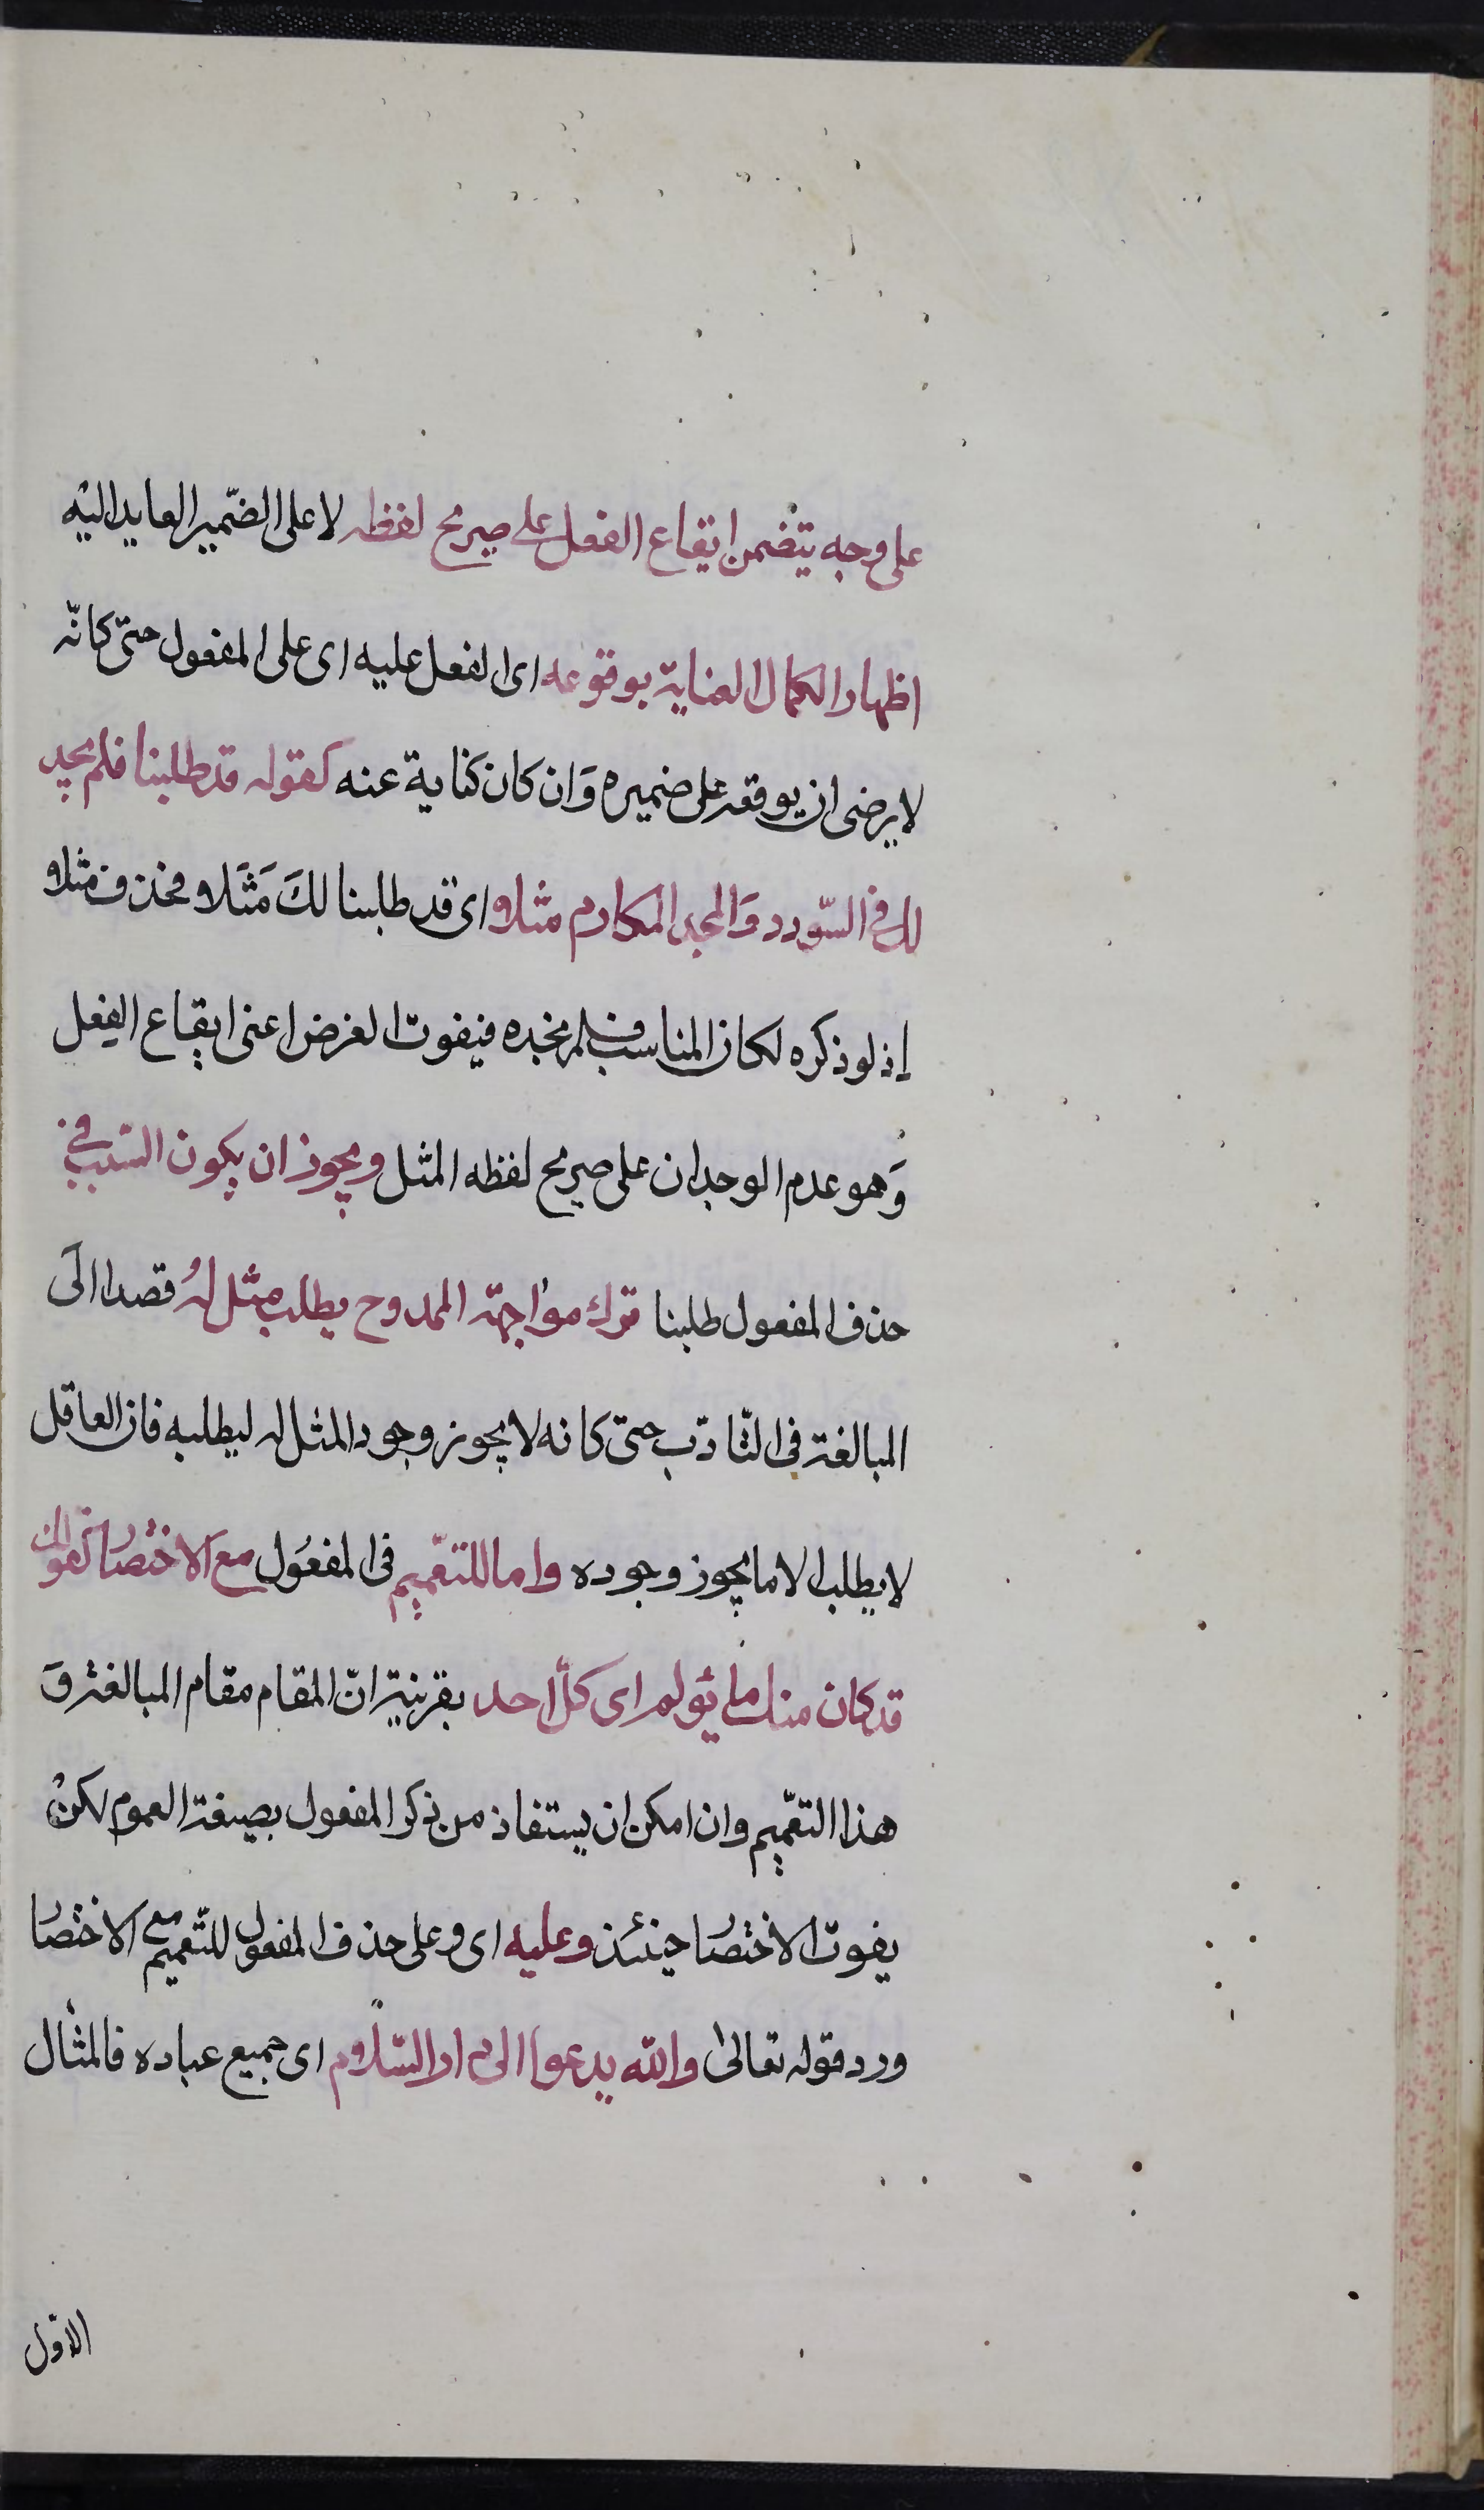 على وجه يتضمن ايقاع الفعل على صريح لفظه لا على الضّمير العايد اليه
اظهارا لكمال العناية بوقوعه اى الفعل عليه اى على المفعول حتى كانّه
لا يرضى ان يوقعه على ضميره وَان كان كناية عنه كقوله قد طلبنا فلم يجد
لك فى السّودد وَالمجد المكارم مثلا اى قد طلبنا لكَ مَثَلا فحذف مثلا
اذ لو ذكره لكان المناسب فلم نجده فيفوت الغرض اعنى ايقاع الفعل
وَهو عدم الوجدان على صريح لفظه المثل ويجوز ان يكون السّبب فى
حذف المفعول طلبنا ترك مواجهة الممدوح بطلب مثل لهُ قصدا الَى
المبالغة فى التّادّب حتى كانه لا يجوز وجود المثل له ليطلبه فان العاقل
لا يطلب الا ما يجوز وجوده واما للتعّميم فى المفعُول مع الاختصار كقولك
قد كان منك ما يؤلم اى كلّ احد بقرينة انّ المقام مقام المبالغة وَ
هذا التعّميم وان امكن ان يستفاذ من ذكر المفعول بصيغة العموم لكنْ
يفوت الاختصار حينئذ وعليه اى وعلى حذف المفعول للتّعميم مع الاختصار
ورد قوله تعالى والله يدعوا الى دار السّلام اى جميع عباده فالمثال
الاوّل